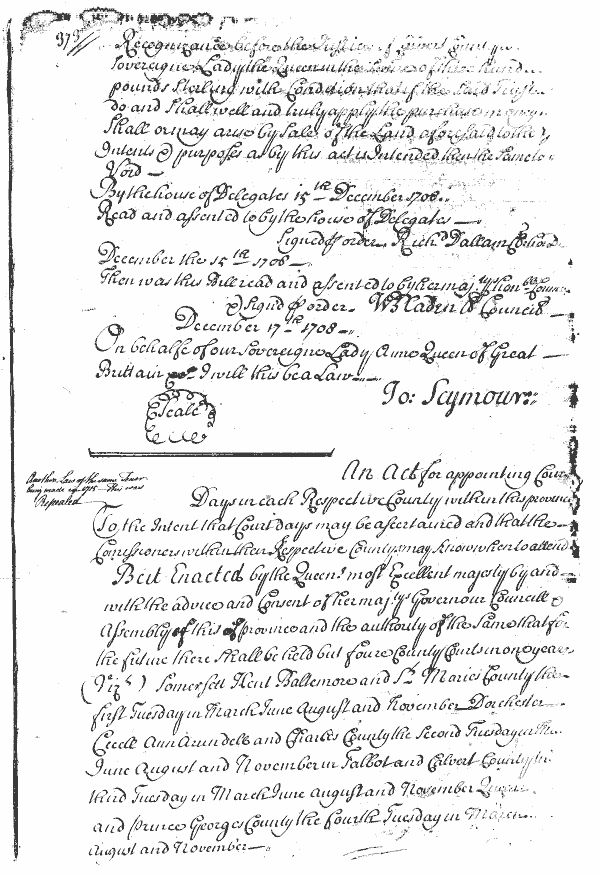 373
Recognizance before the Justices of County
Sovereigne Lady the Queen in the of three hund
pounds Sterling with Condition that if the Said
do and Shall well and truly apply the purchase money
Shall or may arise by Sale of the Land aforesaid to the
Intents & purposes as by this act is Intended then the Same to
Void —
By the house of Delegates 15th December 1708..
Read and assented to by the house of Delegates —
Signed p order Richd Dallam
December the 15th 1708 —
Then was this Bill read and assented to by her majtys honble Coun
Signd p order W Bladen Cl Council —
December 17th 1708 —
On behalfe of our Sovereigne Lady Anne Queen of Great —
Brittain I will this be a Law —
Jo: Seymour::
Seale
Another Law of the same Tenor
being made in 1715 this was
Repealed
An Act for appointing Court
Days in each Respective County within this province
To the Intent that Court days may be ascertained and that the
Comissioners within their Respective Countys may know when to attend
Be it Enacted by the Queens most Excellent majesty by and
with the advice and Consent of her majtys Governour Councill &
Assembly of this province and the authority of the Same that for
the future there Shall be held but foure County Courts in one year
(Vizt) Somersett Kent Baltemore and St Maries County the
first Tuesday in March June August and November Dorchester
Cecell Ann Arundell and Charles County the Second Tuesday in
June August and November in Talbot and Calvert County the
third Tuesday in March June August and November Queen
and prince Georges County the fourth Tuesday in March
August and November —